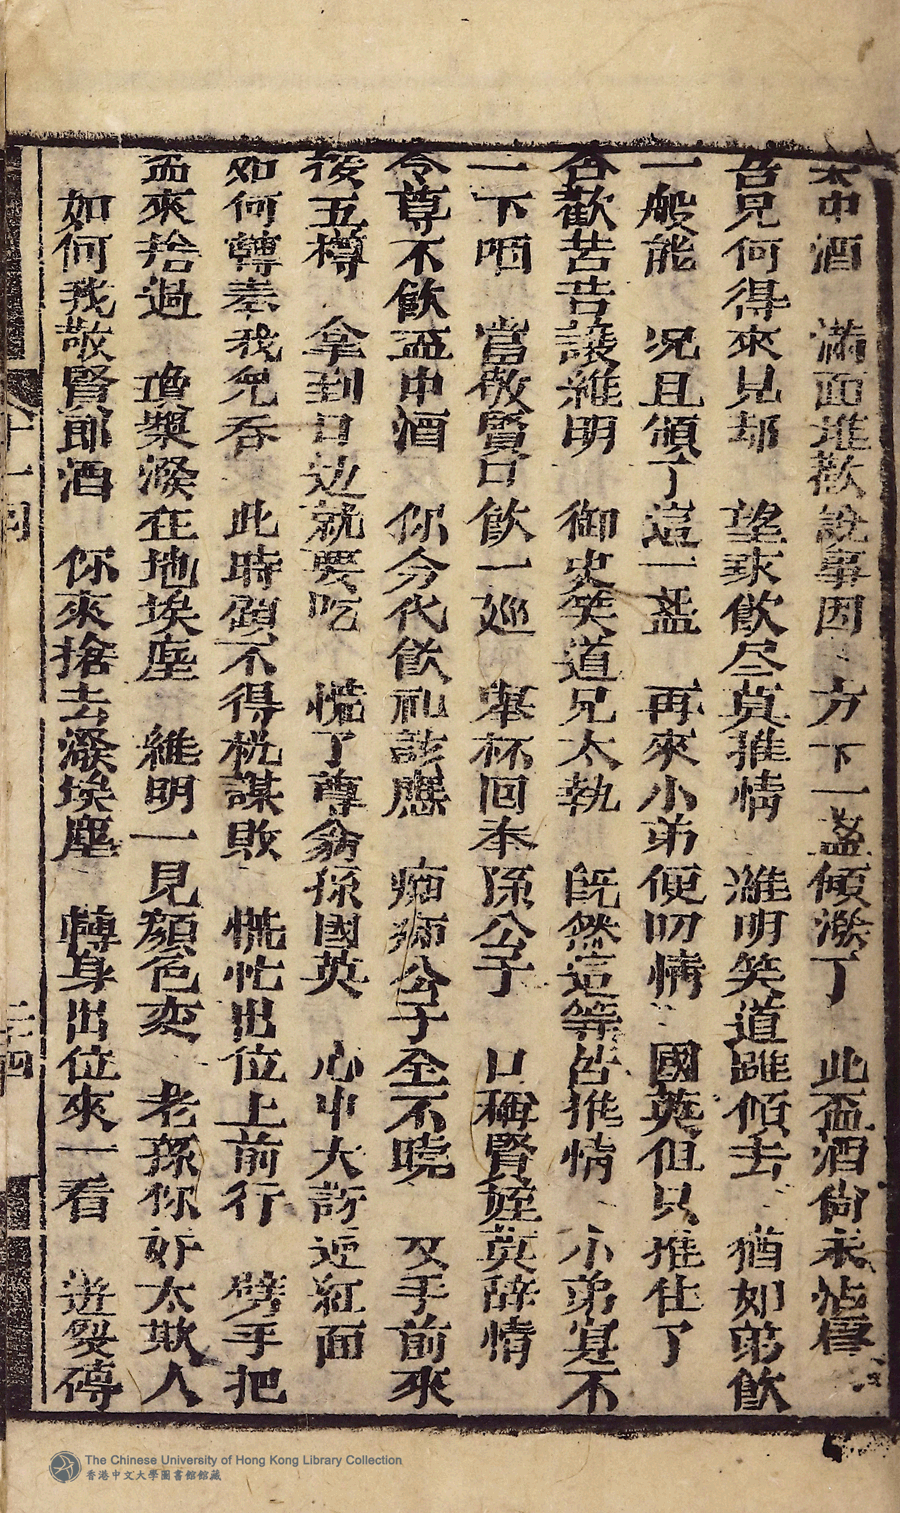 中酒　滿面堆歡說事因　方下一盞傾潑了　此盃酒尙未怗唇
吾兄何得來見却　望求飲尽莫推情　濰明笑道雖傾去　猶如弟飲
一般能　况且領了這一盞　再來小弟便叨情　國英但只推住了
吞歡苦苦讓維明　御史笑道兄太執　旣然這等告推情　小弟寔不
一下咽　當敬賢口飲一廵　舉杯回奉孫公子　口稱賢姪莫辞情
令尊不飲盃中酒　你今代飲礼該應　痴獅公子全不曉　叉手前來
接五樽　拿到口边就要吃　慌了尊翁孫國英　心中大訝逆紅面
如何轉奉我兒吞　此時顧不得枕謀敗　慌忙出位上前行　劈手把
盃來拾過　瓊漿潑在地埃塵　維明一見顏色变　老孫你好太欺人
如何我敬賢郎酒　你來搶去潑埃塵　轉身出位來一看　迸裂磚
十一回
三四
The Chinese University of Hong Kong Library Collection
香港中文大學圖書館館藏